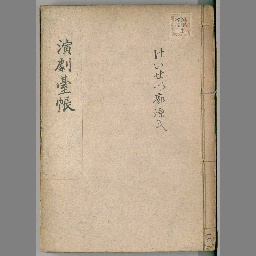 けいせい廓源氏
演劇臺帳